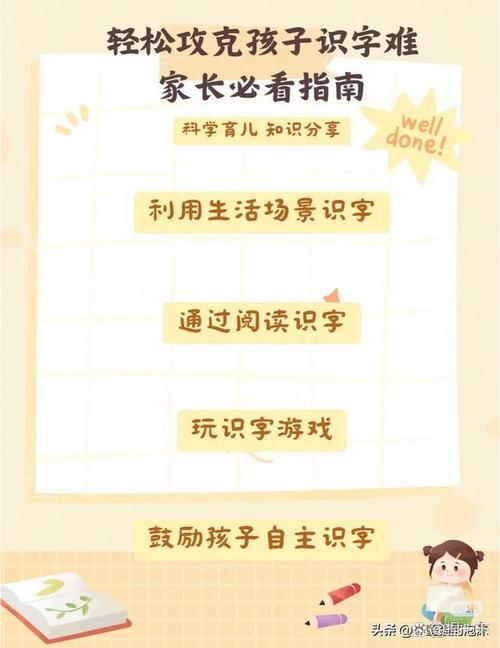 轻松攻克孩子识字难
家长必看指南
科学育儿 知识分享
well
done!
利用生活场景识字
通过阅读识字
玩识字游戏
鼓励孩子自主识字
头条